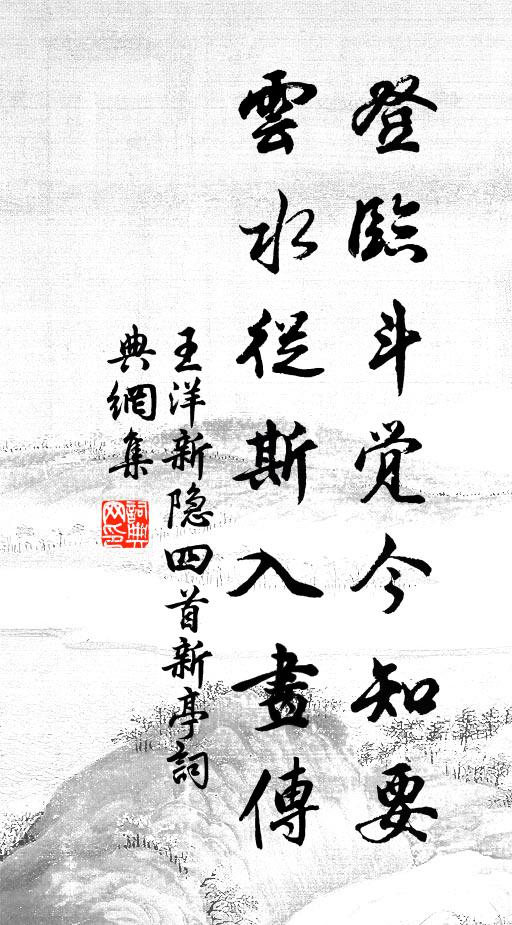 登臨斗覚今知要
雲水從斯入畫傳
王洋新隐四首新亭詞
典網集
詞典网印